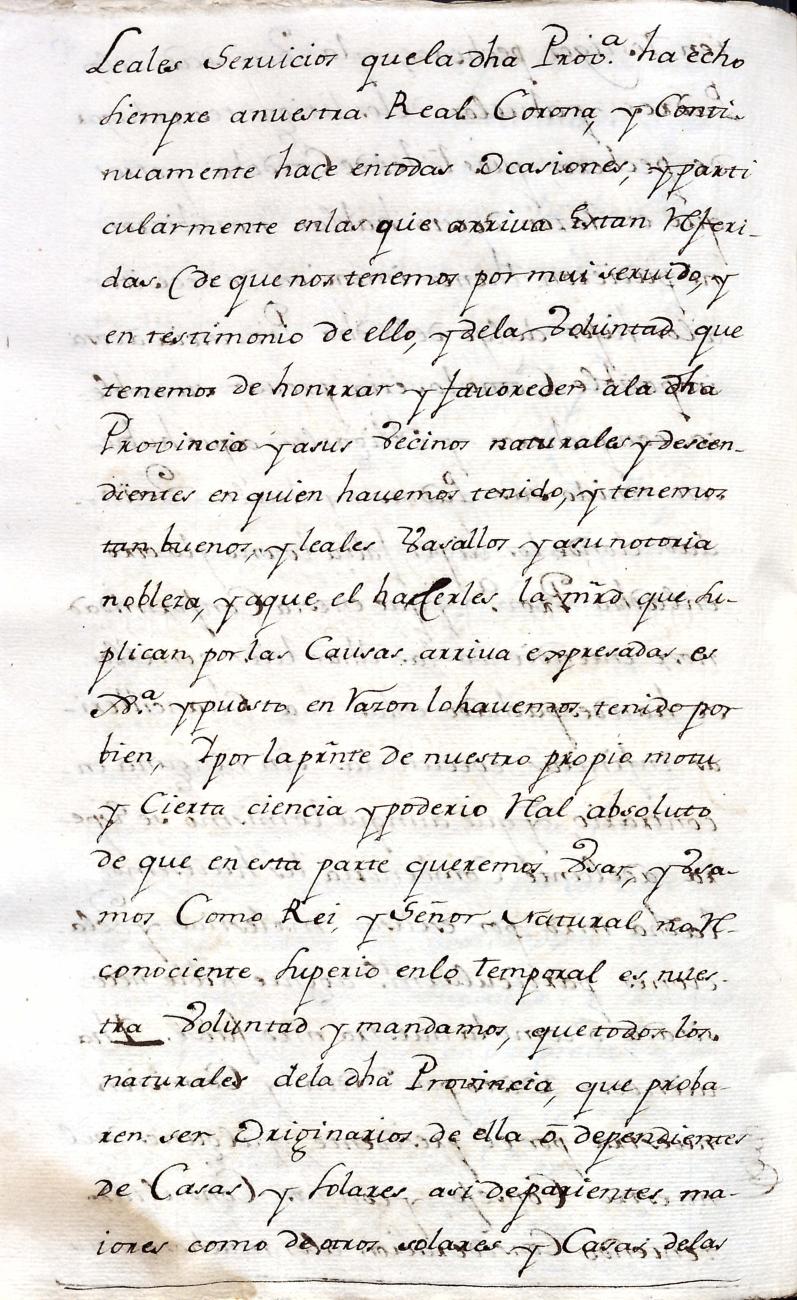 Leales Servicios quela dha Prov.ª ha echo
siempre anuestra Real Corona, y Conti-
nuamente hace entodas Ocasiones, y parti
cularmente enlas que arriva Estan Rferi-
das. (de que nos tenemos por mui servido, y
en testimonio de ello, y dela Voluntad que
tenemos de honrrar y favoreder ala dha
Provincia y asus Vecinos naturales y descen-
dientes en quien havemos tenido, y tenemos
tan buenos, y leales Vasallos y asu notoria
nobleza, y aque el hacerles la mr̃d que su-
plican por las Causas arriva expresadas es
y puesto en Razon lo havemos tenido por
bien, Y por la pr̃nte de nuestro propio motu
y Cierta ciencia y poderio Rl absoluto
de que en esta parte queremos Vsar, y Vsa-
mos Como Rei, y Señor Natural no R-
conociente superio enlo temporal es nues-
tra Voluntad y mandamos, que todos los
naturales dela dha Provincia, que proba-
ren ser Originarios de ella ó dependientes
de Casas y solares asi de parientes ma-
iores como de otros solares y Casas delas